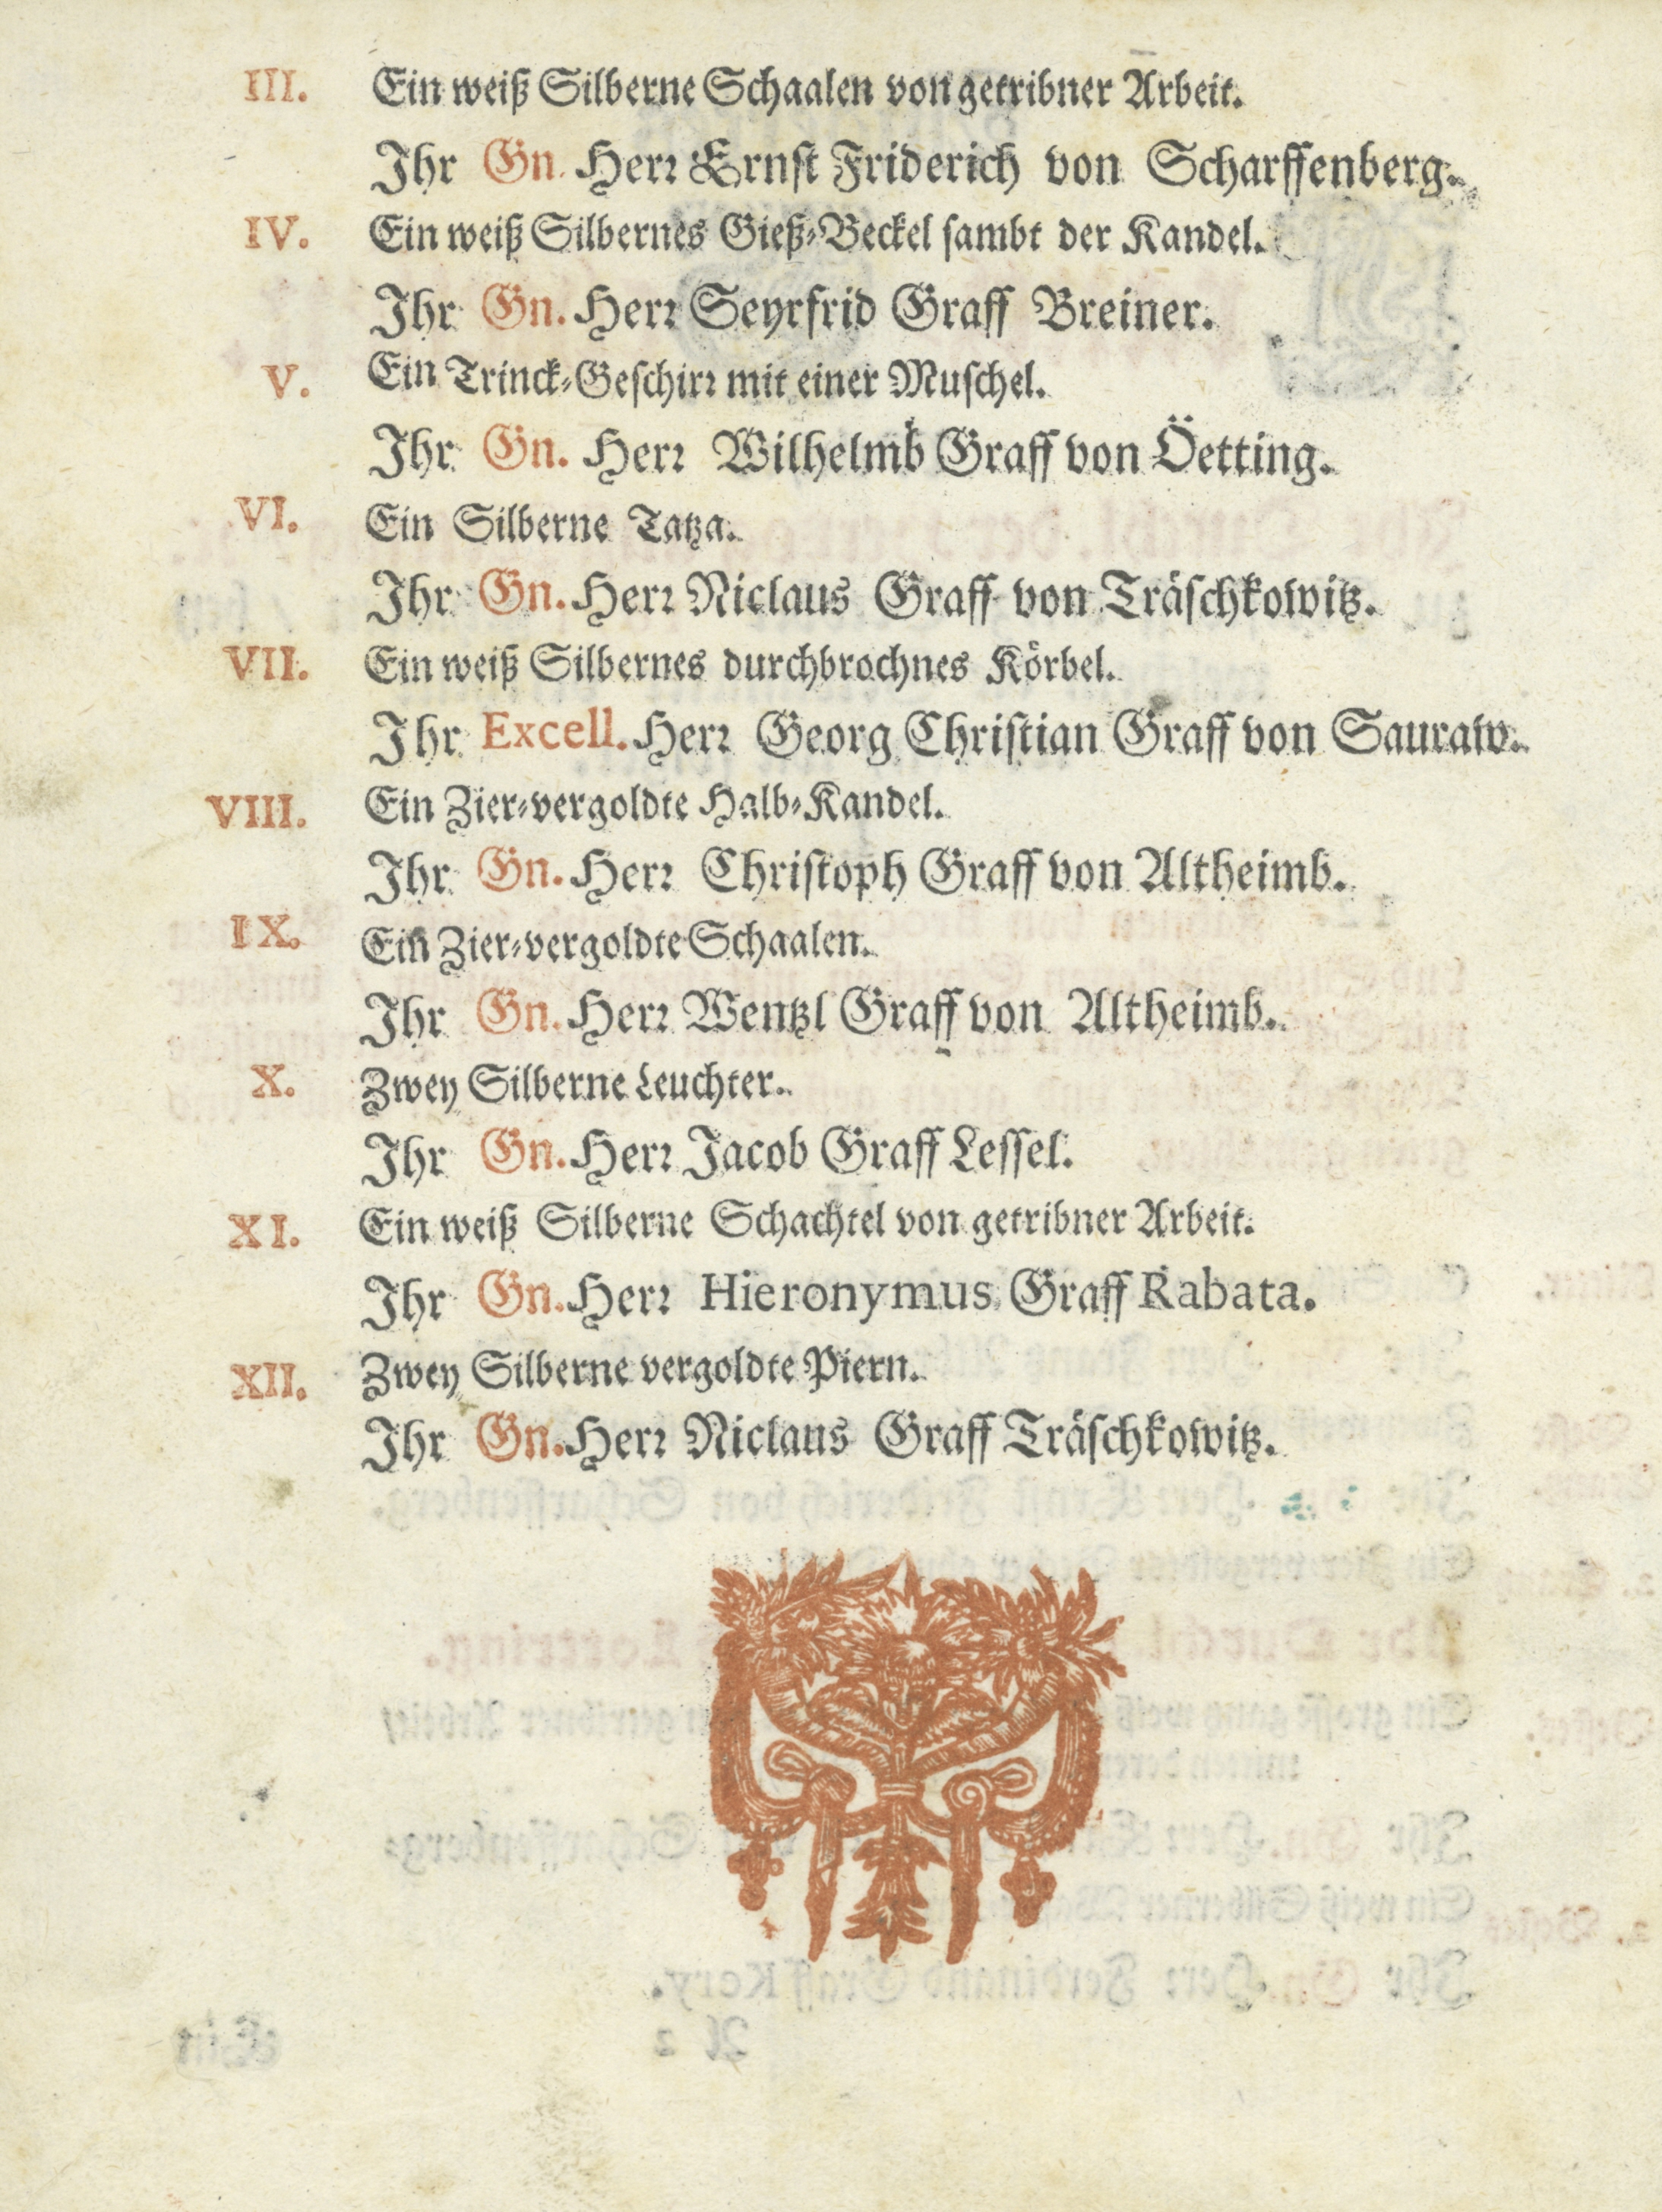 III. Ein weiß Silberne Schaalen von getribner Arbeit.
Ihr Gn. Herꝛ Ernst Friderich von Scharffenberg.
IV. Ein weiß Silbernes Gieß-Beckel sambt der Kandel.
Ihr Gn. Herꝛ Seyrfrid Graff Breiner.
V. Ein Trinck-Geschirꝛ mit einer Muschel.
Ihr Gn. Herꝛ Wilhelmb Graff von Öetting.
VI. Ein Silberne Tatza.
Ihr Gn. Herꝛ Niclaus Graff von Träschkowitz.
VII. Ein weiß Silbernes durchbrochnes Körbel.
Ihr Excell. Herꝛ Georg Christian Graff von Sauraw.
VIII. Ein Zier-vergoldte Halb-Kandel.
Ihr Gn. Herꝛ Christoph Graff von Altheimb.
IX. Ein Zier-vergoldte Schaalen.
Ihr Gn. Herꝛ Wentzl Graff von Altheimb.
X. Zwey Silberne Leuchter.
Ihr Gn. Herꝛ Jacob Graff Lessel.
XI. Ein weiß Silberne Schachtel von getribner Arbeit.
Ihr Gn. Herꝛ Hieronymus Graff Rabata.
XII. Zwey Silberne vergoldte Piern.
Ihr Gn. Herꝛ Niclaus Graff Träschkowitz.